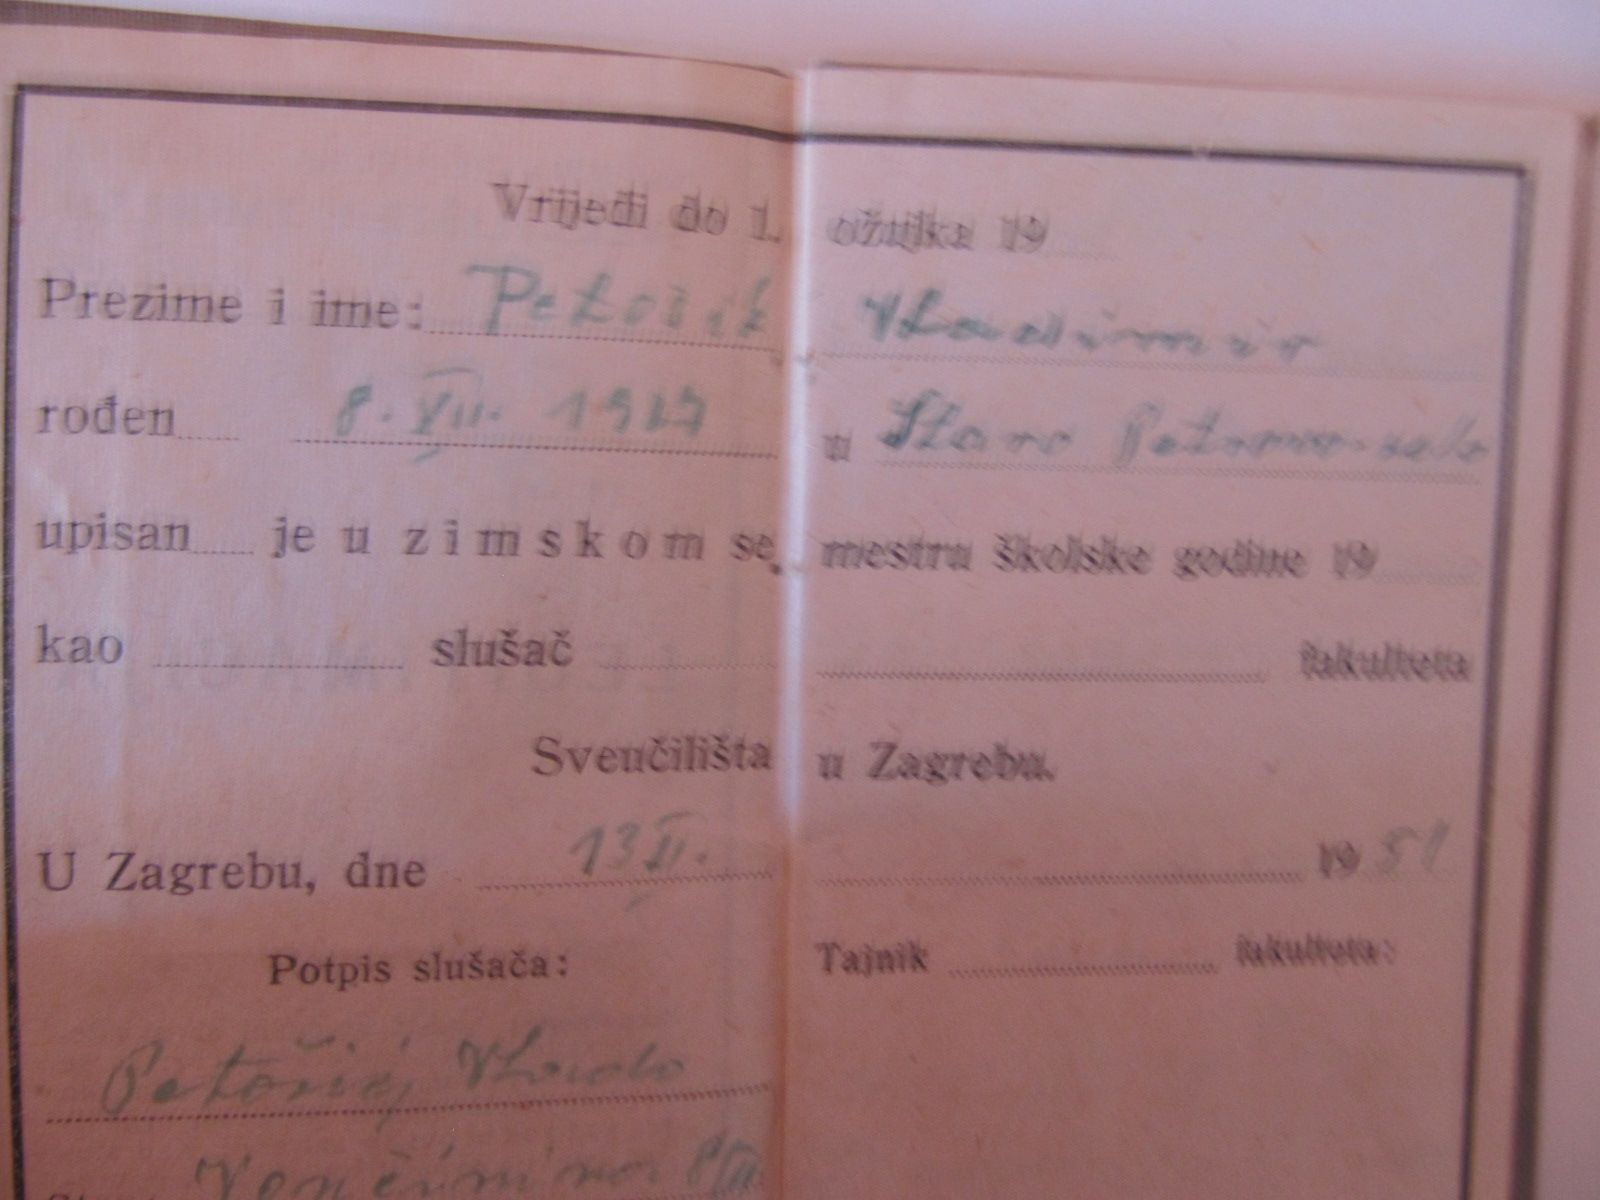 Vrijedi do 1. ožujka 19
Prezime i ime: Petošik Vladimir
rođen 8. VII. 1927 u Staro Petrovo-selo
upisan je u zimskom semestru školske godine 19
kao slušač fakulteta
Sveučilišta u Zagrebu.
U Zagrebu, dne 13 II. 19 51
Potpis slušača: Tajnik fakulteta:
Vlado
8/III